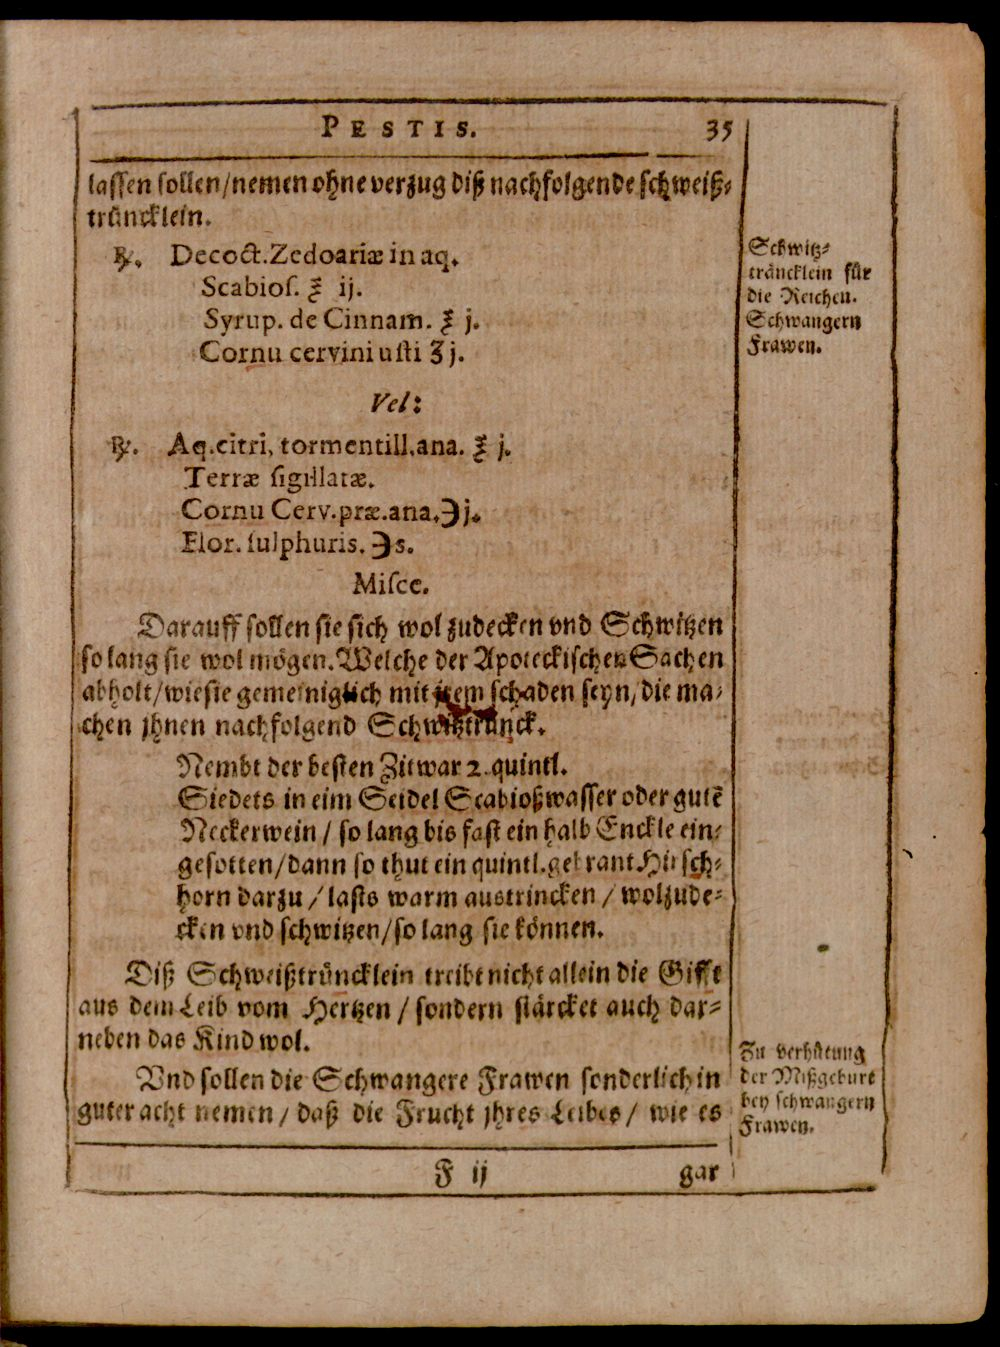 PESTIS. 35
lassen sollen/nemen ohne verzug diß nachfolgende schweiß⸗
trüncklein.
℞. Decoct. Zedoariæ in aq.
Scabios. ℥ ij.
Syrup. de Cinnam. ℥ j.
Cornu cervini usti ʒ j.
Vel:
℞. Aq. citri, tormentill. ana. ℥ j.
Terræ sigillatæ.
Cornu Cerv. præ. ana. ℈ j.
Flor. sulphuris. ℈ s.
Misce.
Darauff sollen sie sich wol zudecken vnd Schwitzen
so lang sie wol mögen. Welche der Apoteckischen Sachen
abholt/wie sie gemeiniglich mit schaden seyn/die ma⸗
chen jhnen nachfolgend Schwitztrünck.
Nembt der besten Zitwar 2. quintl.
Siedets in eim Seidel Scabioßwasser oder gutē
Neckerwein / so lang bis fast ein halb Enckle ein⸗
gesotten/dann so thut ein quintl. gebrant Hirsch⸗
horn darzu / lasts warm austrincken / wol zude⸗
cken vnd schwitzen/so lang sie können.
Diß Schweißtrüncklein treibt nicht allein die Gifft
aus dem Leib vom Hertzen / sondern stärcket auch dar⸗
neben das Kind wol.
Vnd sollen die Schwangere Frawen sonderlich in
guter acht nemen / daß die Frucht jhres Leibes / wie es
F ij gar
Schwitz⸗
träncklein für
die Reichen.
Schwangern
Frawen.
Zu verhütung
der Mißgeburt
bey schwangern
Frawen.